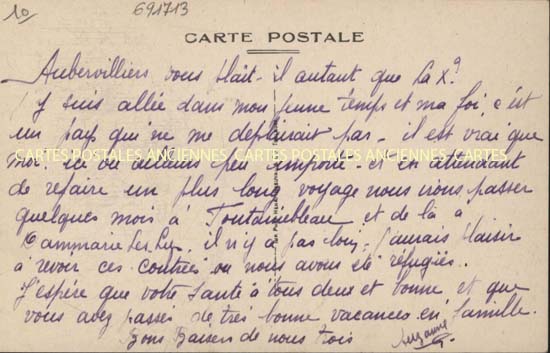 10
691713
CARTE POSTALE
Aubervilliers vous plait-il autant que La X°
J'y suis allée dans mon jeune temps et ma foi, c'est
un pays qui ne me déplairait pas - il est vrai que
moi, ici ou ailleurs peu importe - et en attendant
CARTES POSTALES ANCIENNES CARTES POSTALES ANCIENNES CARTES
de refaire un plus long voyage nous irons passer
quelques mois à Fontainebleau et de là à
Dammarie les Lys. il n'y a pas loin, j'aurais plaisir
à revoir ces contrées où nous avons été réfugiés..
J'espère que votre santé à tous deux est bonne et que
vous avez passés de très bonne vacances en famille.
Bons Baisers de nous trois
Suzanne